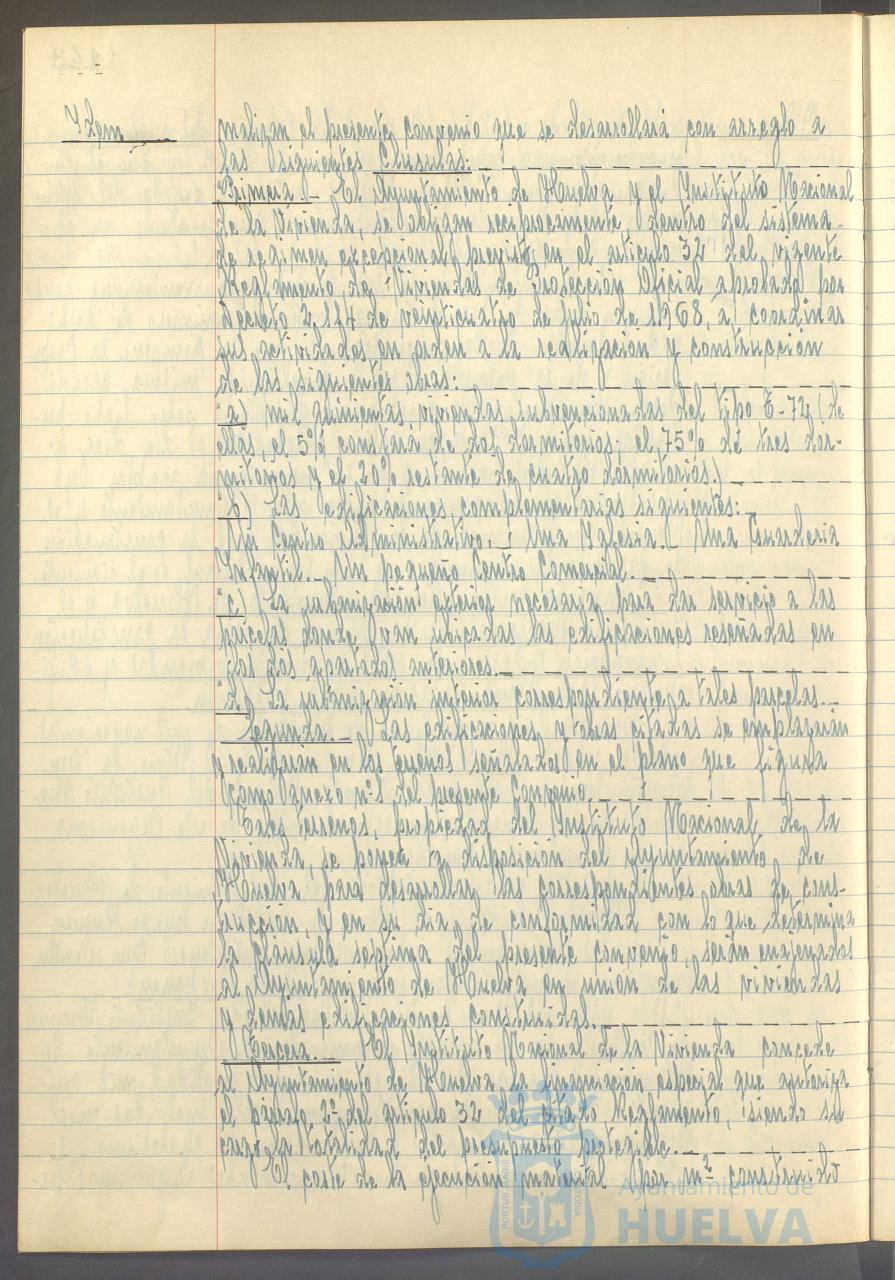 Idem
malizan el presente convenio que se desarrollará con arreglo a
las siguientes Clusulas:
"Primera._ El Ayuntamiento de Huelva y el Instituto Nacional
de la Vivienda, se obligan reciprocamente, dentro del sistema
de regimen excepcional previsto en el articulo 32 del vigente
Reglamento de Viviendas de Protección Oficial aprobado por
Decreto 2.114 de veinticuatro de Julio de 1968, a coordinar
sus actividades en orden a la realización y construcción
de las siguientes obras:
"a) mil quinientas viviendas subvencionadas del tipo E-72 (de
ellas, el 5% constará de dos dormitorios; el 75% de tres dor-
mitorios y el 20% restante de cuatro dormitorios.)
"b) Las edificaciones complementarias siguientes:
Un Centro Administrativo._ Una Iglesia._ Una Guarderia
Infantil._ Un pequeño Centro Comercial.
"c) La urbanización exterior necesaria para dar servicio a las
parcelas donde van ubicadas las edificaciones reseñadas en
los dos apartados anteriores.
"d) La urbanización interior correspondiente a tales parcelas._
Segunda._ Las edificaciones y obras citadas se emplazarán
y realizarán en los terrenos señalados en el plano que figura
como anexo nº 1 del presente Convenio.
Estos terrenos, propiedad del Instituto Nacional de la
Vivienda, se ponen a disposición del Ayuntamiento de
Huelva para desarrollar las correspondientes obras de cons-
trucción, y en su dia, de conformidad con lo que determina
la cláusula septima del presente convenio, serán enajenados
al Ayuntamiento de Huelva en unión de las viviendas
y demas edificaciones construidas.
Tercera._ El Instituto Nacional de la Vivienda concede
al Ayuntamiento de Huelva la financiación especial que autoriza
el párrafo 2º del articulo 32 del citado Reglamento, siendo su
cargo la totalidad del presupuesto protegible.
El coste de la ejecución material por m² construido
PORTUS MARIS
CUSTODIA
Ayuntamiento de
HUELVA